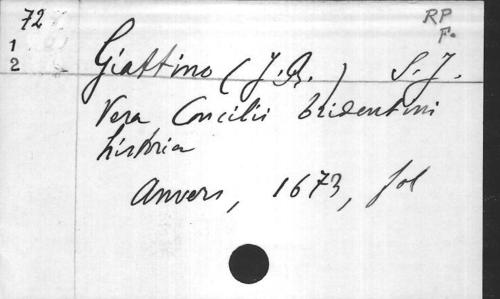 72
RP
F.
1
2
Giattino (J. B.) S. J.
Vera Concilii tridentini
historia
Anvers, 1673, fol